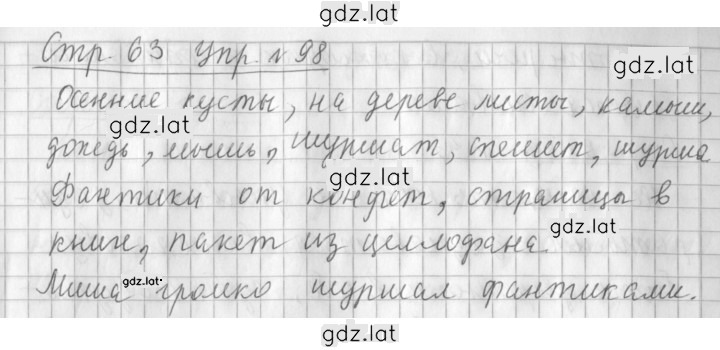 gdz.lat
Стр 63 упр № 98
gdz.lat
Осенние кусты, на дереве листы, камыши,
gdz.lat
дождь, мышь, шуршат, спешит, шурша
gdz.lat
Фантики от конфет, страницы в
gdz.lat
книг, пакет из целлофана.
gdz.lat
Миша громко шуршал фантиками.
gdz.lat